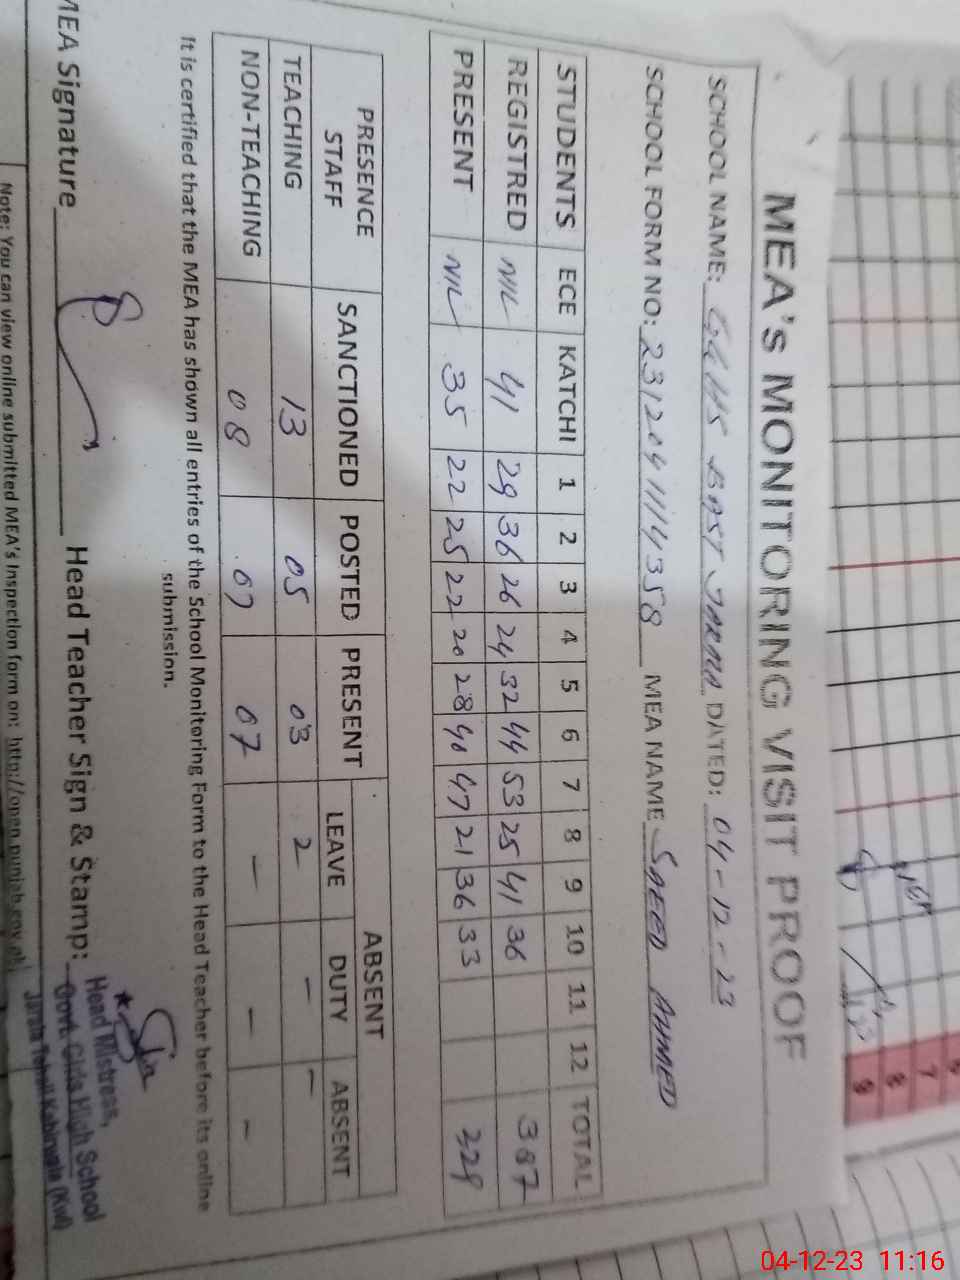 MEA's MONITORING VISIT PROOF
SCHOOL NAME: GGHS DATED: 04-12-23
SCHOOL FORM NO: MEA NAME SAEED AHMED
STUDENTS ECE KATCHI 1 2 3 4 5 6 7 8 9 10 11 12 TOTAL
REGISTRED NIL 41 29 36 26 24 32 44 53 25 41 36 387
PRESENT NIL 35 22 25 22 20 28 40 47 21 36 33 329
PRESENCE STAFF SANCTIONED POSTED PRESENT ABSENT
LEAVE DUTY ABSENT
TEACHING 13 05 03 2 - -
NON-TEACHING 08 07 07 - - -
It is certified that the MEA has shown all entries of the School Monitoring Form to the Head Teacher before its online
submission.
MEA Signature Head Teacher Sign & Stamp:
Head Mistress,
Govt. Girls High School
Note: You can view online submitted MEA's Inspection form on: http://open.punjab.gov.pk
7
8
9
04-12-23 11:16